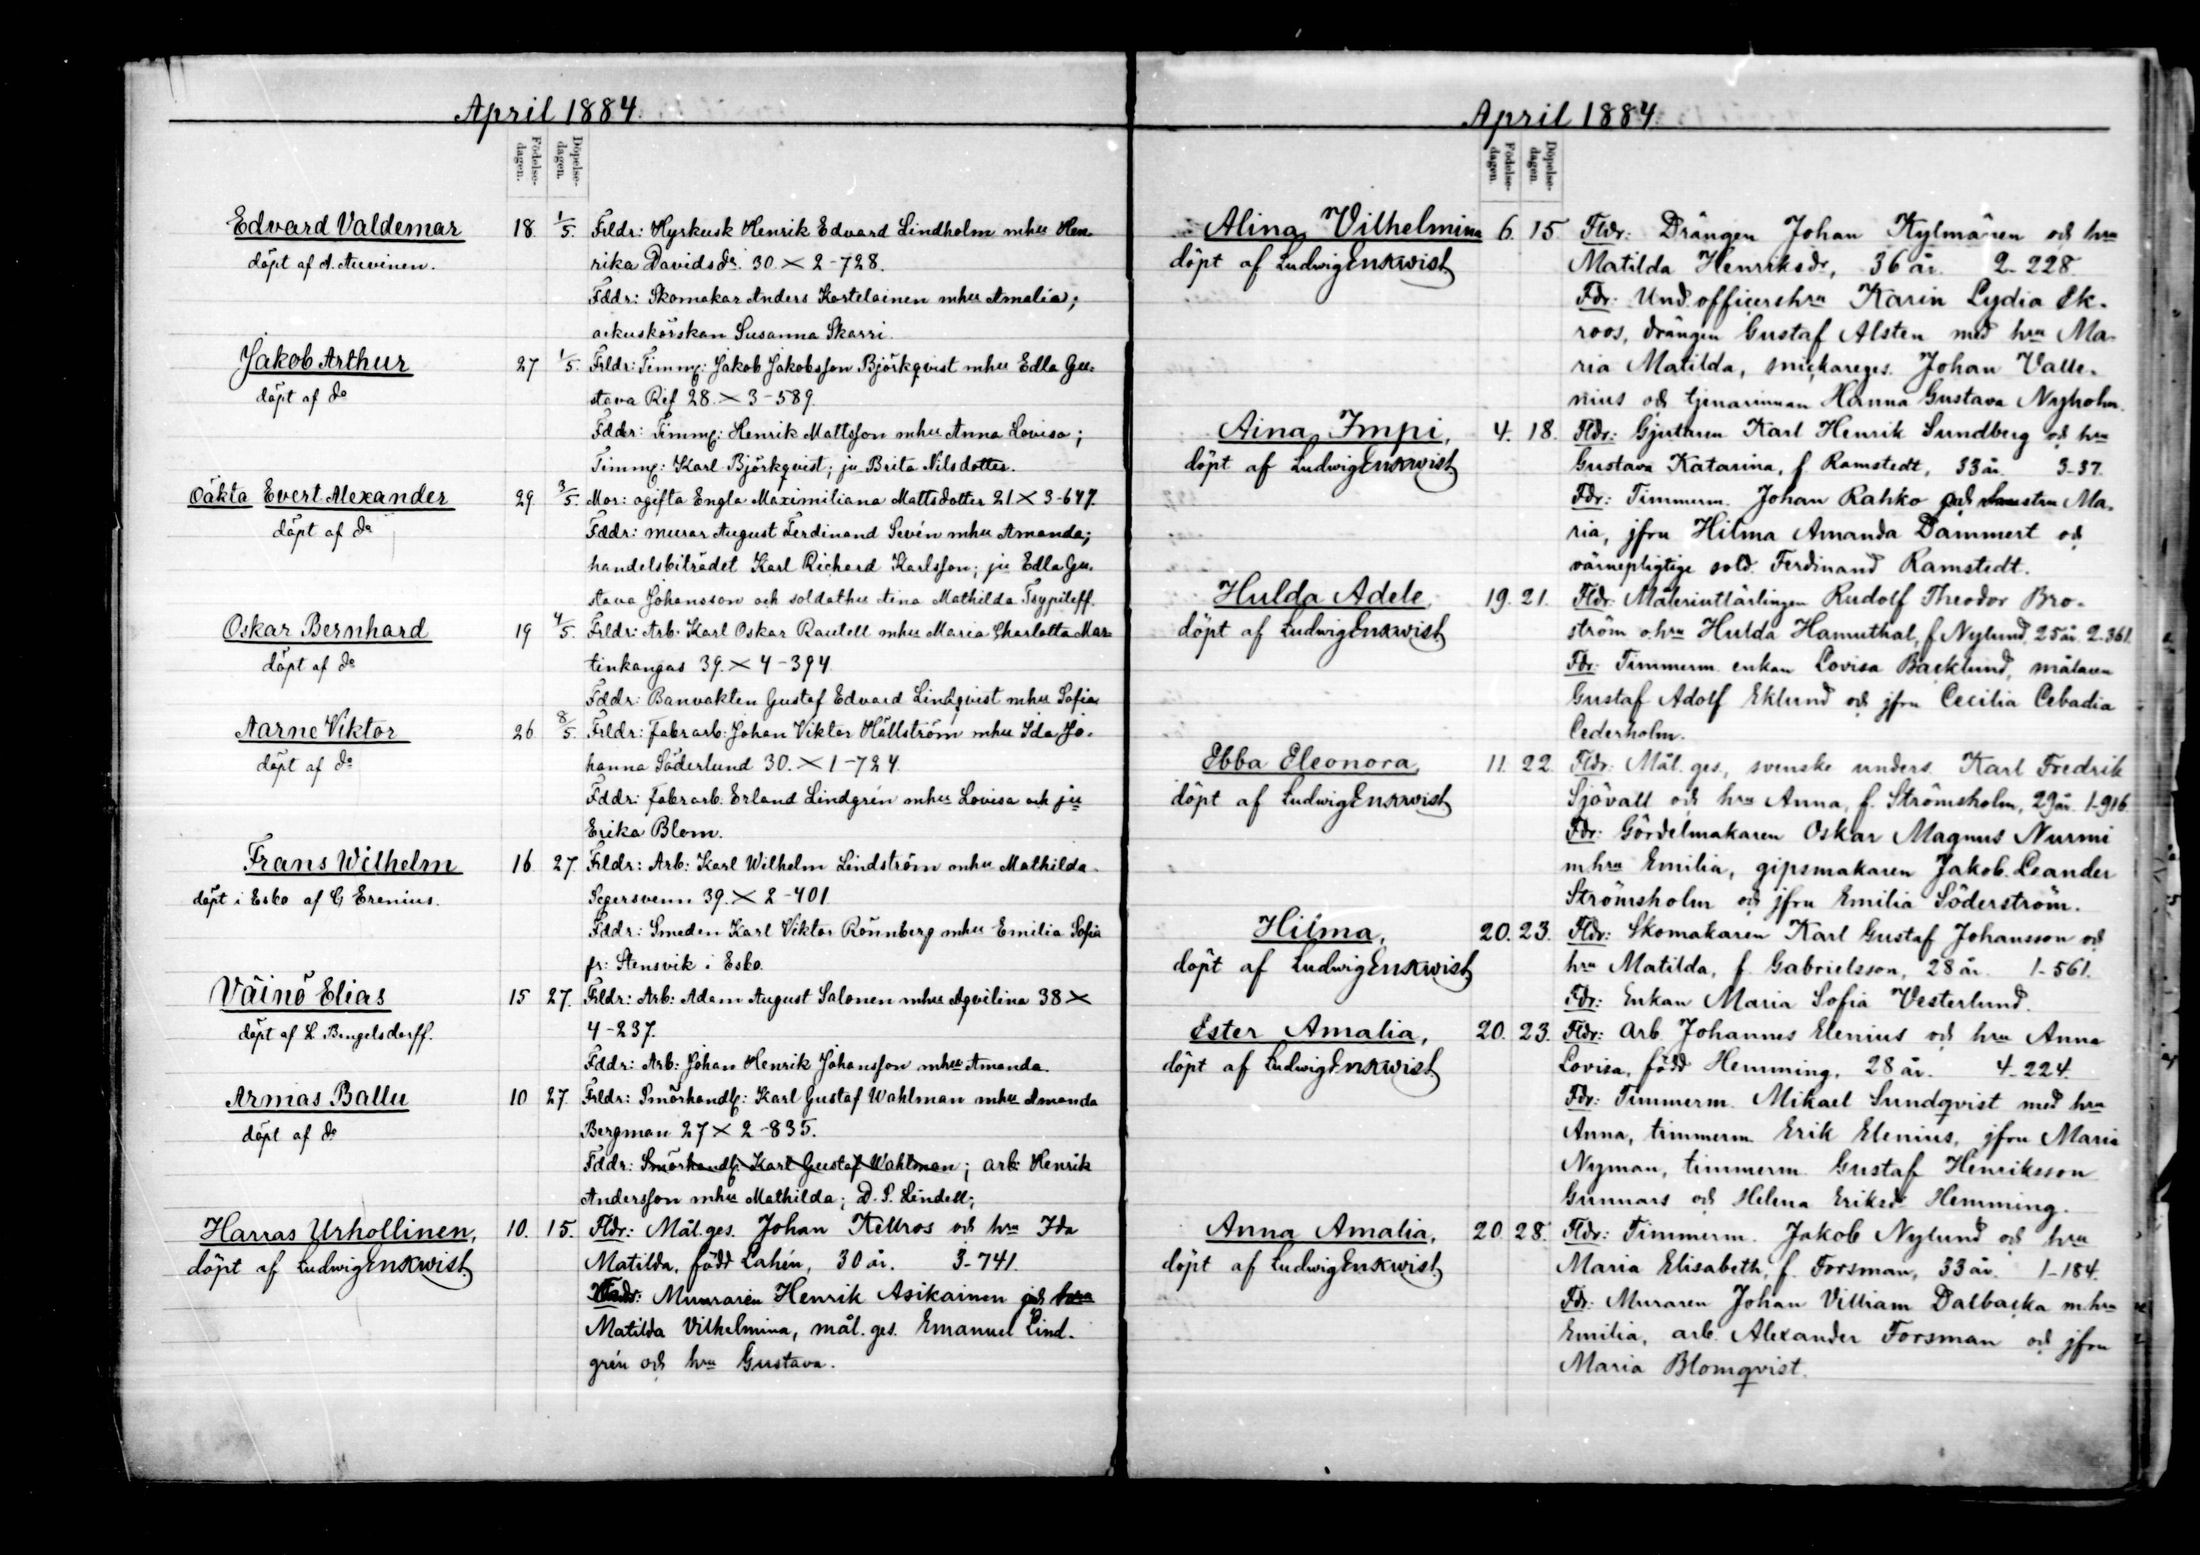 April 1884.
Födelse-
dagen.
Döpelse-
dagen.
Edvard Valdemar 18. 1/5. Frldr: Hyrkusk Henrik Edvard Lindholm mhu Hen-
döpt af A. Auvinen. rika Davidsdr. 30. × 2-728.
Fddr: Skomakar Anders Kortelainen mhu Amalia;
Susanna Skarri.
Jakob Arthur 27 1/5. Frldr: Timmg: Jakob Jakobsson Björkqvist mhu Edla Gu-
döpt af do stava Ref 28. × 3-589.
Fddr: Timmg: Henrik Mattsson mhu Anna Lovisa;
Timmg: Karl Björkqvist; ju Brita Nilsdotter.
Oäkta Evert Alexander 29. 3/5. Mor: ogifta Engla Maximiliana Mattsdotter 21 × 3-647.
döpt af do Fddr: murar August Ferdinand Sevén mhu Amanda;
handelsbiträdet Karl Richard Karlsson; ju Edla Gu-
stava Johansson och soldathu Aina Mathilda Tsypileff.
Oskar Bernhard 19 4/5. Frldr: Arb: Karl Oskar Rautell mhu Maria Charlotta Mar-
döpt af do tinkangas 39. × 4-394
Fddr: Banvakten Gustaf Edvard Lindqvist mhu Sofia
Aarne Viktor 26 8/5. Frldr: fabr arb: Johan Viktor Hällström mhu Ida Jo-
döpt af do hanna Söderlund 30. × 1-724.
Fddr: fabr arb. Erland Lindgrén mhu Lovisa och ju
Erika Blom.
Frans Wilhelm 16 27. Frldr: Arb: Karl Wilhelm Lindström mhu Mathilda
döpt i Esbo af G Erenius. Segersvenn 39. × 2-401.
Fddr: Smeden Karl Viktor Rönnberg mhu Emilia Sofia
fr: Stensvik i Esbo.
Väinö Elias 15 27. Frldr: Arb: Adam August Salonen mhu Aqvilina 38 ×
döpt af L. Bengelsdorff. 4-237.
Fddr: Arb: Johan Henrik Johansson mhu Amanda.
Armas Ballu 10 27. Frldr: Smörhandl: Karl Gustaf Wahlman mhu Amanda
döpt af do Bergman 27 × 2-835.
Fddr: Smörhandl: Karl Gustaf Wahlman; arb: Henrik
Andersson mhu Mathilda; D. S. Lindell;
Harras Urhollinen, 10. 15. Fldr: Mål. ges. Johan Kellros och hru Ida
döpt af Ludwig Enkwist. Matilda, född Lahén, 30 år. 3-741.
Muraren Henrik Asikainen och hru
Matilda Vilhelmina, mål. ges. Emanuel Lind-
grén och hru Gustava.
April 1884.
Födelse-
dagen.
Döpelse-
dagen.
Alina Vilhelmina 6. 15. Fldr: Drängen Johan Kylmänen och hru
döpt af Ludwig Enkwist. Matilda Henriksdr, 36 år. 2-228.
Fdr: Und. officershru Karin Lydia Ek-
roos, drängen Gustaf Alsten med hru Ma-
ria Matilda, snickareges. Johan Valle-
nius och tjenarinnan Hanna Gustava Nyholm.
Aina Impi, 4. 18. Fldr: Gjutaren Karl Henrik Sundberg och hru
döpt af Ludwig Enkwist. Gustava Katarina, f. Ramstedt, 33 år. 3-37.
Fdr: Timmerm. Johan Rahko och hustru Ma-
ria, jfru Hilma Amanda Dammert och
värnepligtige sold. Ferdinand Ramstedt.
Hulda Adele, 19. 21. Fldr: Målerintlärlingen Rudolf Theodor Bro-
döpt af Ludwig Enkwist. ström o. hru Hulda Hamuthal, f. Nylund, 25 år. 2-361.
Fdr: Timmerm. enkan Lovisa Backlund, målaren
Gustaf Adolf Eklund och jfru Cecilia Cebadia
Cederholm.
Ebba Eleonora, 11. 22. Fldr: Mål. ges., svenske unders. Karl Fredrik
döpt af Ludwig Enkwist. Sjövall och hru Anna, f. Strömsholm, 29 år. 1-916.
Fdr: Gördelmakaren Oskar Magnus Nurmi
m. hru Emilia, gipsmakaren Jakob Leander
Strömsholm och jfru Emilia Söderström.
Hilma, 20. 23. Fldr: Skomakaren Karl Gustaf Johansson och
döpt af Ludwig Enkwist. hru Matilda, f. Gabrielsson, 28 år. 1-561.
Fdr: Enkan Maria Sofia Vesterlund.
Ester Amalia, 20. 23. Fldr: Arb. Johannes Elenius och hru Anna
döpt af Ludwig Enkwist. Lovisa, född Hemming, 28 år. 4-224.
Fdr: Timmerm. Mikael Sundqvist med hru
Anna, timmerm. Erik Elenius, jfru Maria
Nyman, timmerm. Gustaf Henriksson
Gunnars och Helena Eriksdr Hemming.
Anna Amalia, 20 28. Fldr: Timmerm. Jakob Nylund och hru
döpt af Ludwig Enkwist. Maria Elisabeth, f. Forsman, 33 år. 1-184.
Fdr: Muraren Johan Villiam Dalbacka m. hru
Emilia, arb. Alexander Forsman och jfru
Maria Blomqvist.